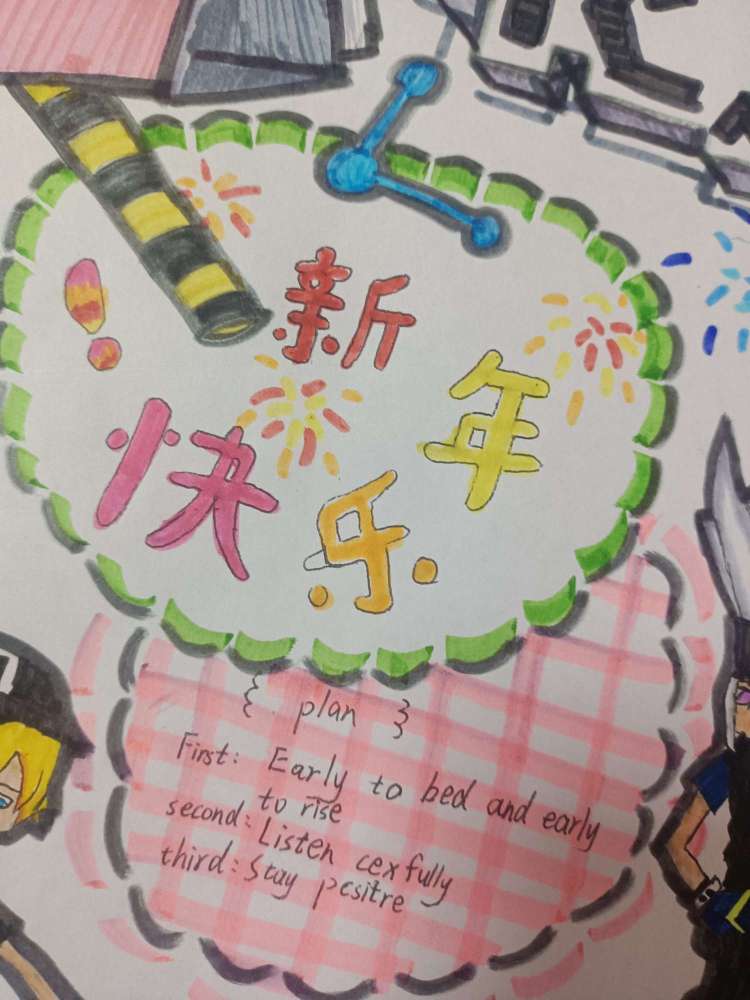 新
年
快
乐
{ plan }
First: Early to bed and early
to rise
second: Listen cexfully
third: Stay pesitre